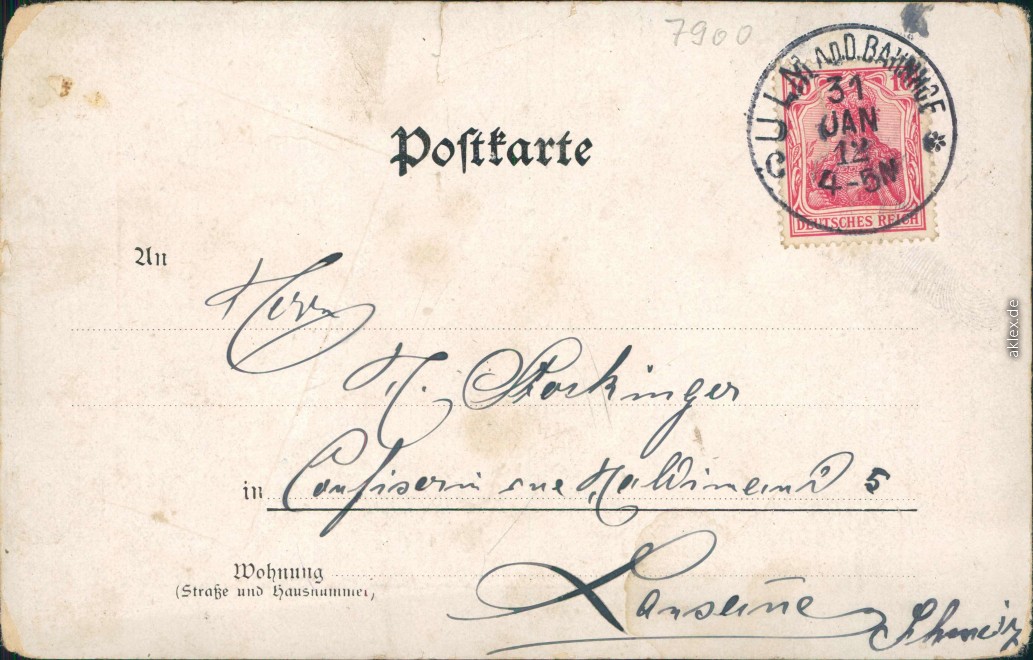 7900
ULM A.D.D. BAHNHOF *
31
JAN
12
4-5N
DEUTSCHES REICH
Postkarte
An
Herrn
H. Stockinger
in Confiserie rue Haldimand 5
Wohnung
(Straße und Hausnummer)
Lausanne Schweiz
aklex.de